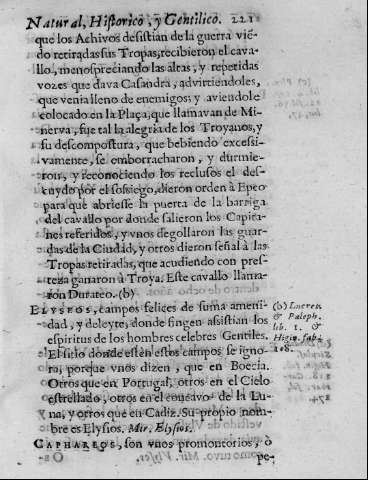 Natural, Historico, y Gentilico. 221
que los Achivos desistian de la guerra viẽ-
do retiradas sus Tropas, recibieron el cava-
llo, menospreciando las altas, y repetidas
vozes que dava Casandra, advirtiendoles,
que venia lleno de enemigos; y aviendole
colocado en la Plaça, que llamavan de Mi-
nerva, fue tal la alegria de los Troyanos, y
su descompostura, que bebiendo excessi-
vamente, se emborracharon, y durmie-
ron, y reconociendo los reclusos el des-
cuydo por el sossiego, dieron orden à Epeo
para que abriesse la puerta de la barriga
del cavallo por donde salieron los Capita-
nes referidos, y vnos degollaron las guar-
das de la Ciudad, y otros dieron señal à las
Tropas retiradas, que acudiendo con pres-
teza ganaron à Troya. Este cavallo llama-
ron Durateo. (b)
ELYSIOS, campos felices de suma ameni-
dad, y deleyte, donde fingen assistian los
espiritus de los hombres celebres Gentiles.
El sitio donde estèn estos campos se igno-
ra, porque vnos dizen, que en Boecia.
Otros que en Portugal, otros en el Cielo
estrellado, otros en el concavo de la Lu-
na, y otros que en Cadiz. Su propio nom-
bre es Elysios. Mir. Elysios.
CAPHAREOS, son vnos promontorios, ò
pe-
(b) Lucret.
& Paleph.
lib. 1. &
Higin. fab.
108.